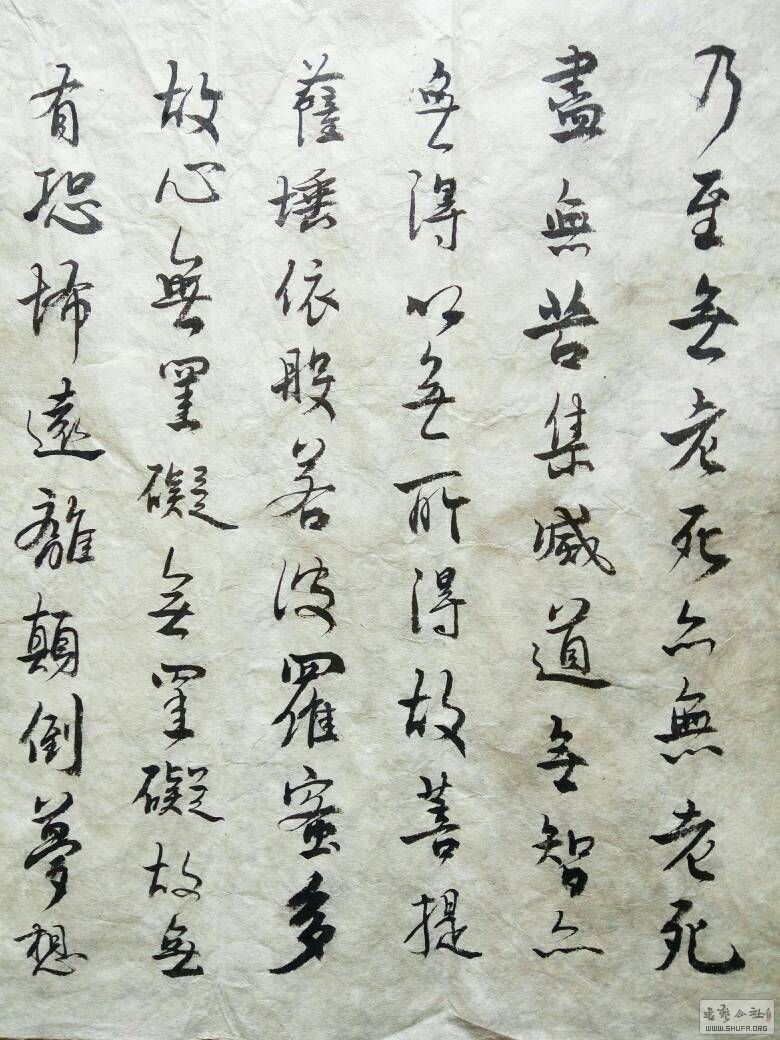 乃至無老死亦無老死
盡無苦集滅道無智亦
無得以無所得故菩提
薩埵依般若波羅蜜多
故心無罣礙無罣礙故無
有恐怖遠離顛倒夢想
书艺公社
WWW.SHUFA.ORG